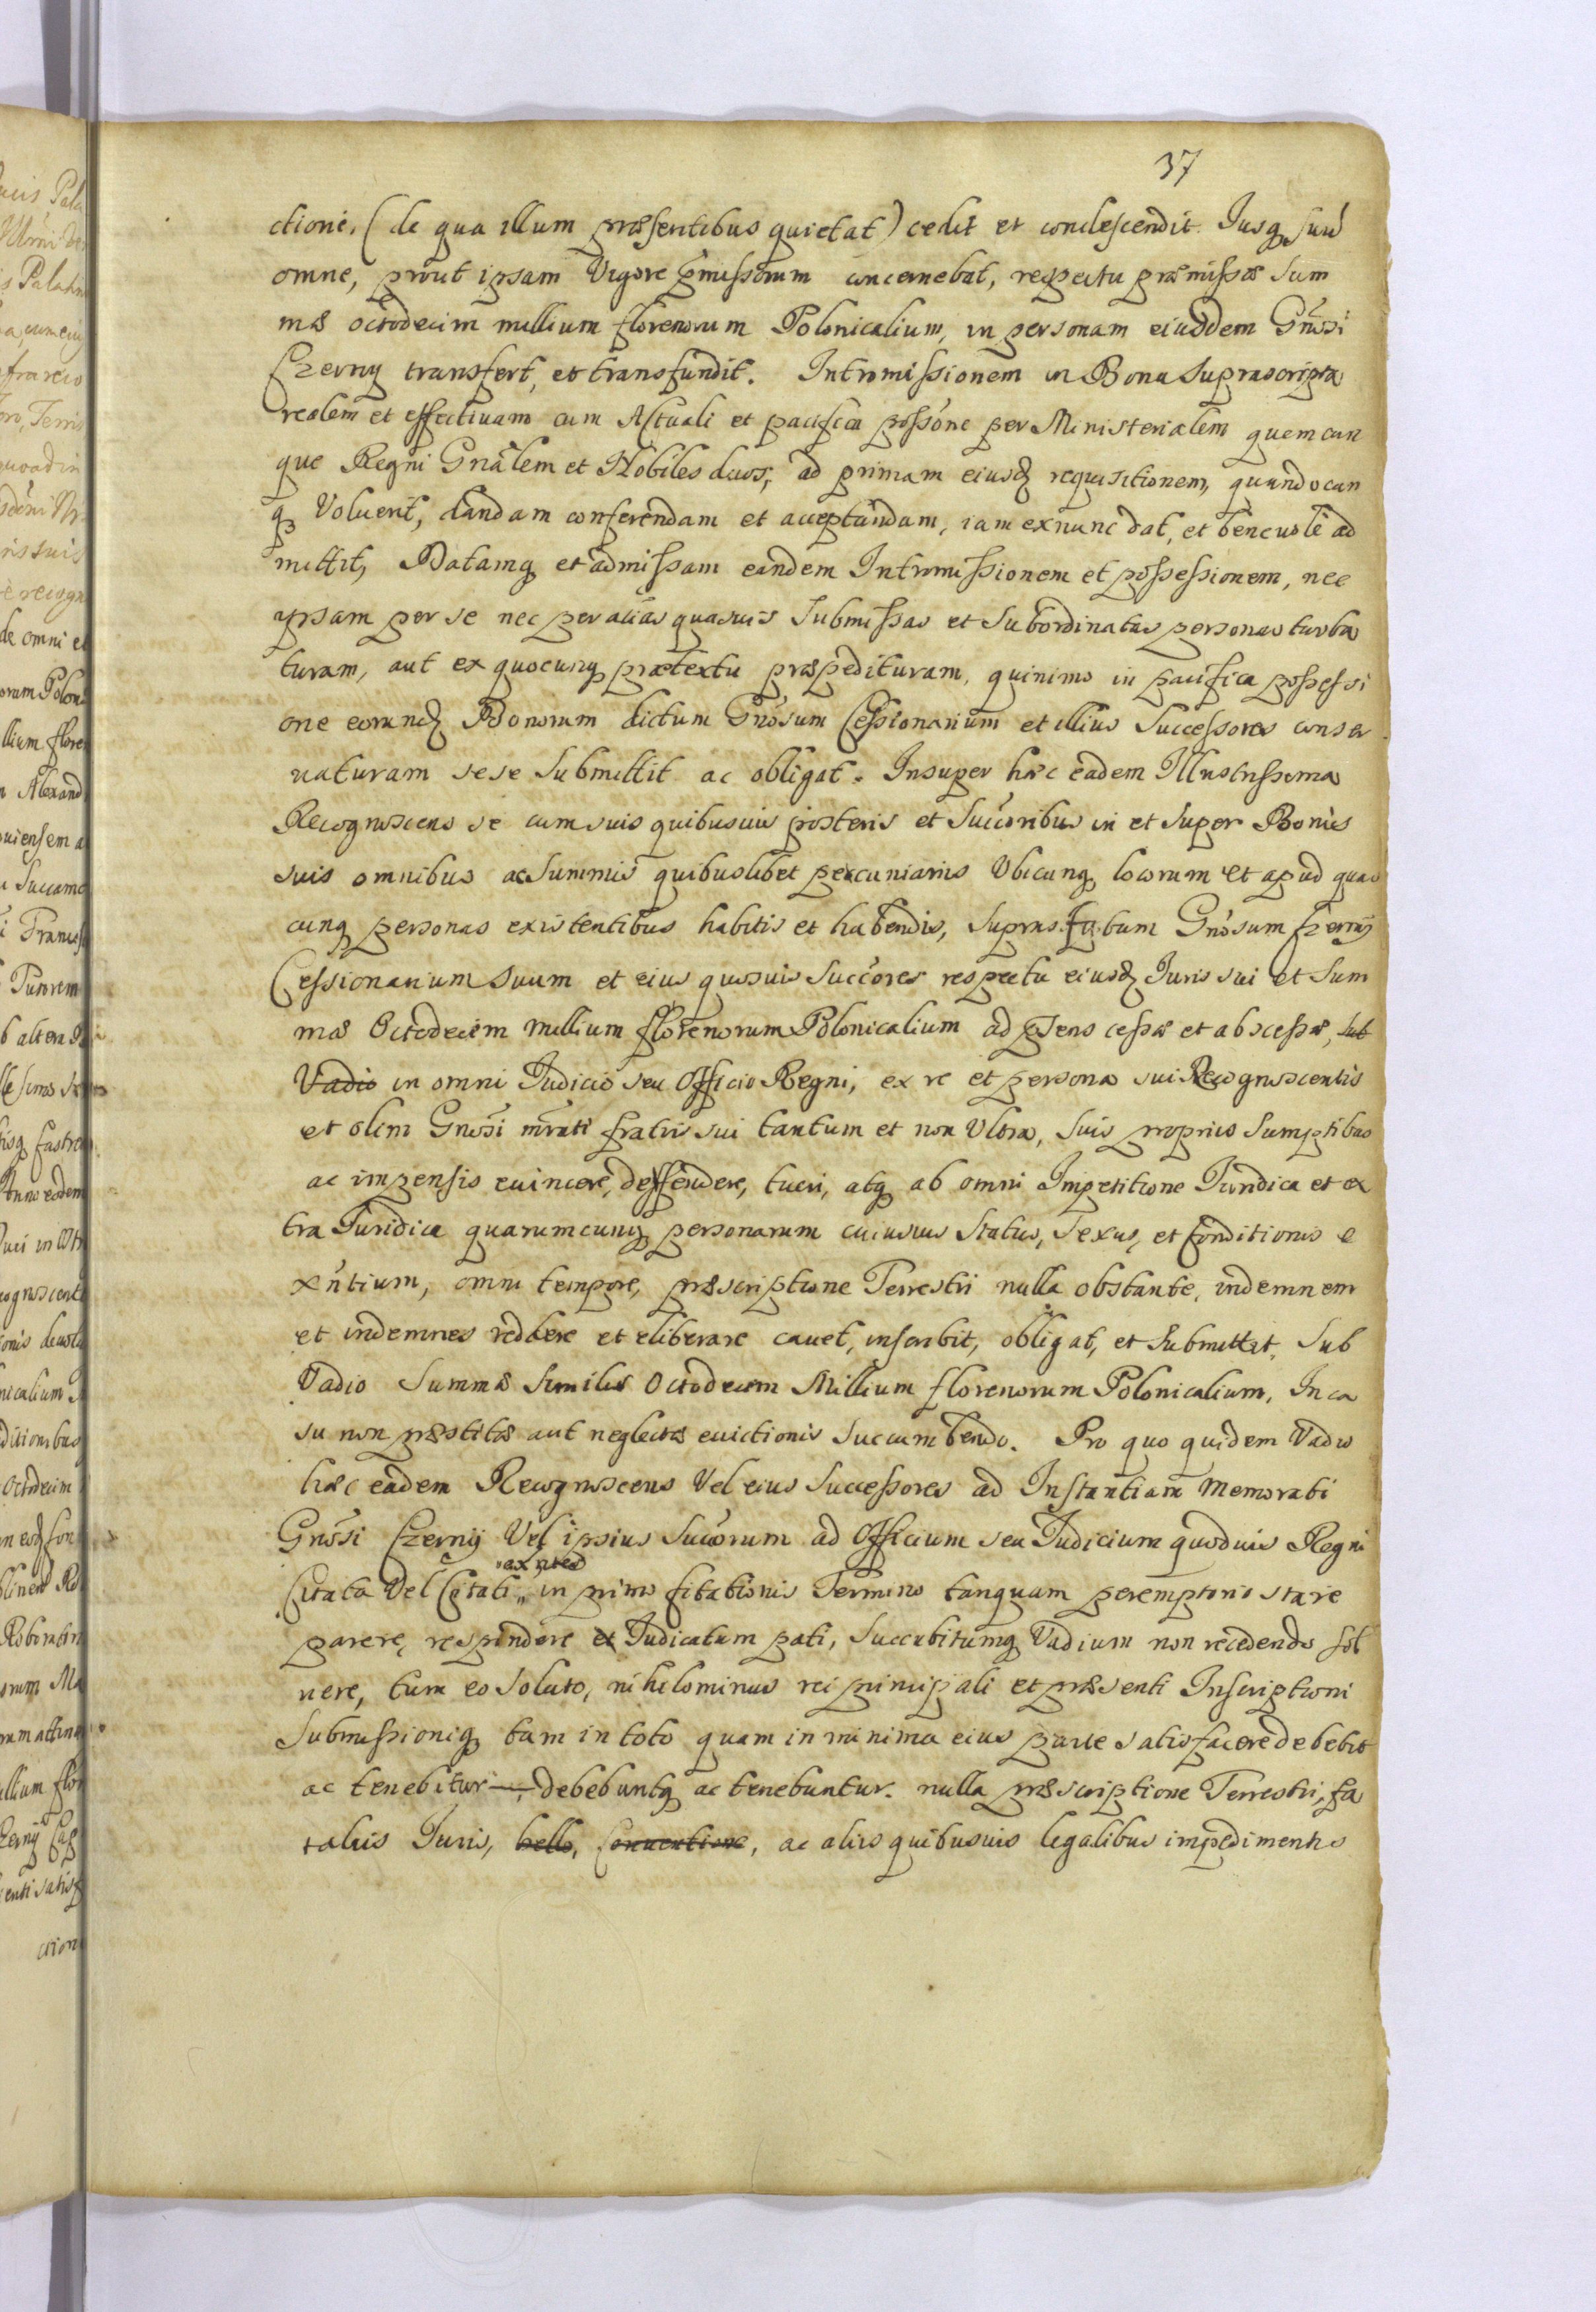 37
ctione, (de qua illum præsentibus quietat) cedit et condescendit. Iusq suũ
omne, prout ipsam Vigore p̃missorum concernebat, respectu præmissæ Sum
mæ octodecim millium florenorum Polonicalium, in personam eiusdem Gñosi
Czerny transfert, et transfundit. Intromissionem in Bona Suprascripta
realem et effectiuam cum Actuali et pacifica possõne per Ministerialem quemcun
que Regni Gnãlem et Nobiles duos, ad primam eiusdꝫ requisitionem, quandocun
q Voluerit, dandam conferendam et acceptandam, iam exnunc dat, et beneuole ad
mittit, Datamq et admissam eandem Intromissionem et possessionem, nec
ipsam per se nec per alias quasuis Submissas et Subordinatas personas turba
turam, aut ex quocunq prætextu præpedituram, quinimo in pacifica possessi
one eorundꝫ Bonorum dictum Gnõsum Cessionarium et illius Successores conser
uaturam sese Submittit ac obligat. Insuper hæc eadem Illustrissima
Recognoscens se cum suis quibusuis posteris et Succõribus in et Super Bonis
suis omnibus ac Summis quibuslibet pecuniariis Vbicunq locorum et apud quas
cunq personas existentibus habitis et habendis, Supras fatum Gnõsum Czerny
Cessionarium Suum et eius quosuis Succõres respectu eiusdꝫ Iuris sui et Sum
mæ Octodecim Millium florenorum Polonicalium ad p̃sens cessæ et abscessæ, sub
Vadio in omni Iudicio seu Officio Regni, ex re et persona sui Recognoscentis
et olim Gnõsi mr̃ati fratris sui tantum et non Vltra, Suis propriis Sumptibus
ac impensis euincere, deffendere, tueri, atq ab omni Impetitione Iuridica et ex
tra Iuridica quarumcunq personarum cuiusuis Status, Sexus, et Conditionis e
xñtium, omni tempore, præscriptione Terrestri nulla obstante, indemnem
et indemnes reddere et eliberare cauet, inscribit, obligat, et Submittit, Sub
Vadio Summæ Similis Octodecim Millium florenorum Polonicalium, In ca
su non præstitæ aut neglectæ euictionis Succumbendo. Pro quo quidem Vadio
hæc eadem Recognoscens Vel eius Successores ad Instantiam Memorati
Gnõsi Czerny Vel ipsius Succõrum ad Officium seu Iudicium quoduis Regni
Citata Vel Citati in primo Citationis Termino tanquam peremptorio stare
parere, respondere et Iudicatum pati, Succubitumq Vadium non recedendo sol
uere, tum eo soluto, nihilominus rei principali et præsenti Inscriptioni
Submissioniq tam in toto quam in minima eius parte satisfacere debebit
ac tenebitur, debebuntq ac tenebuntur. nulla præscriptione Terrestri, fa
taliis Iuris, bello, Conuentione, ac aliis quibusuis legalibus impedimentis